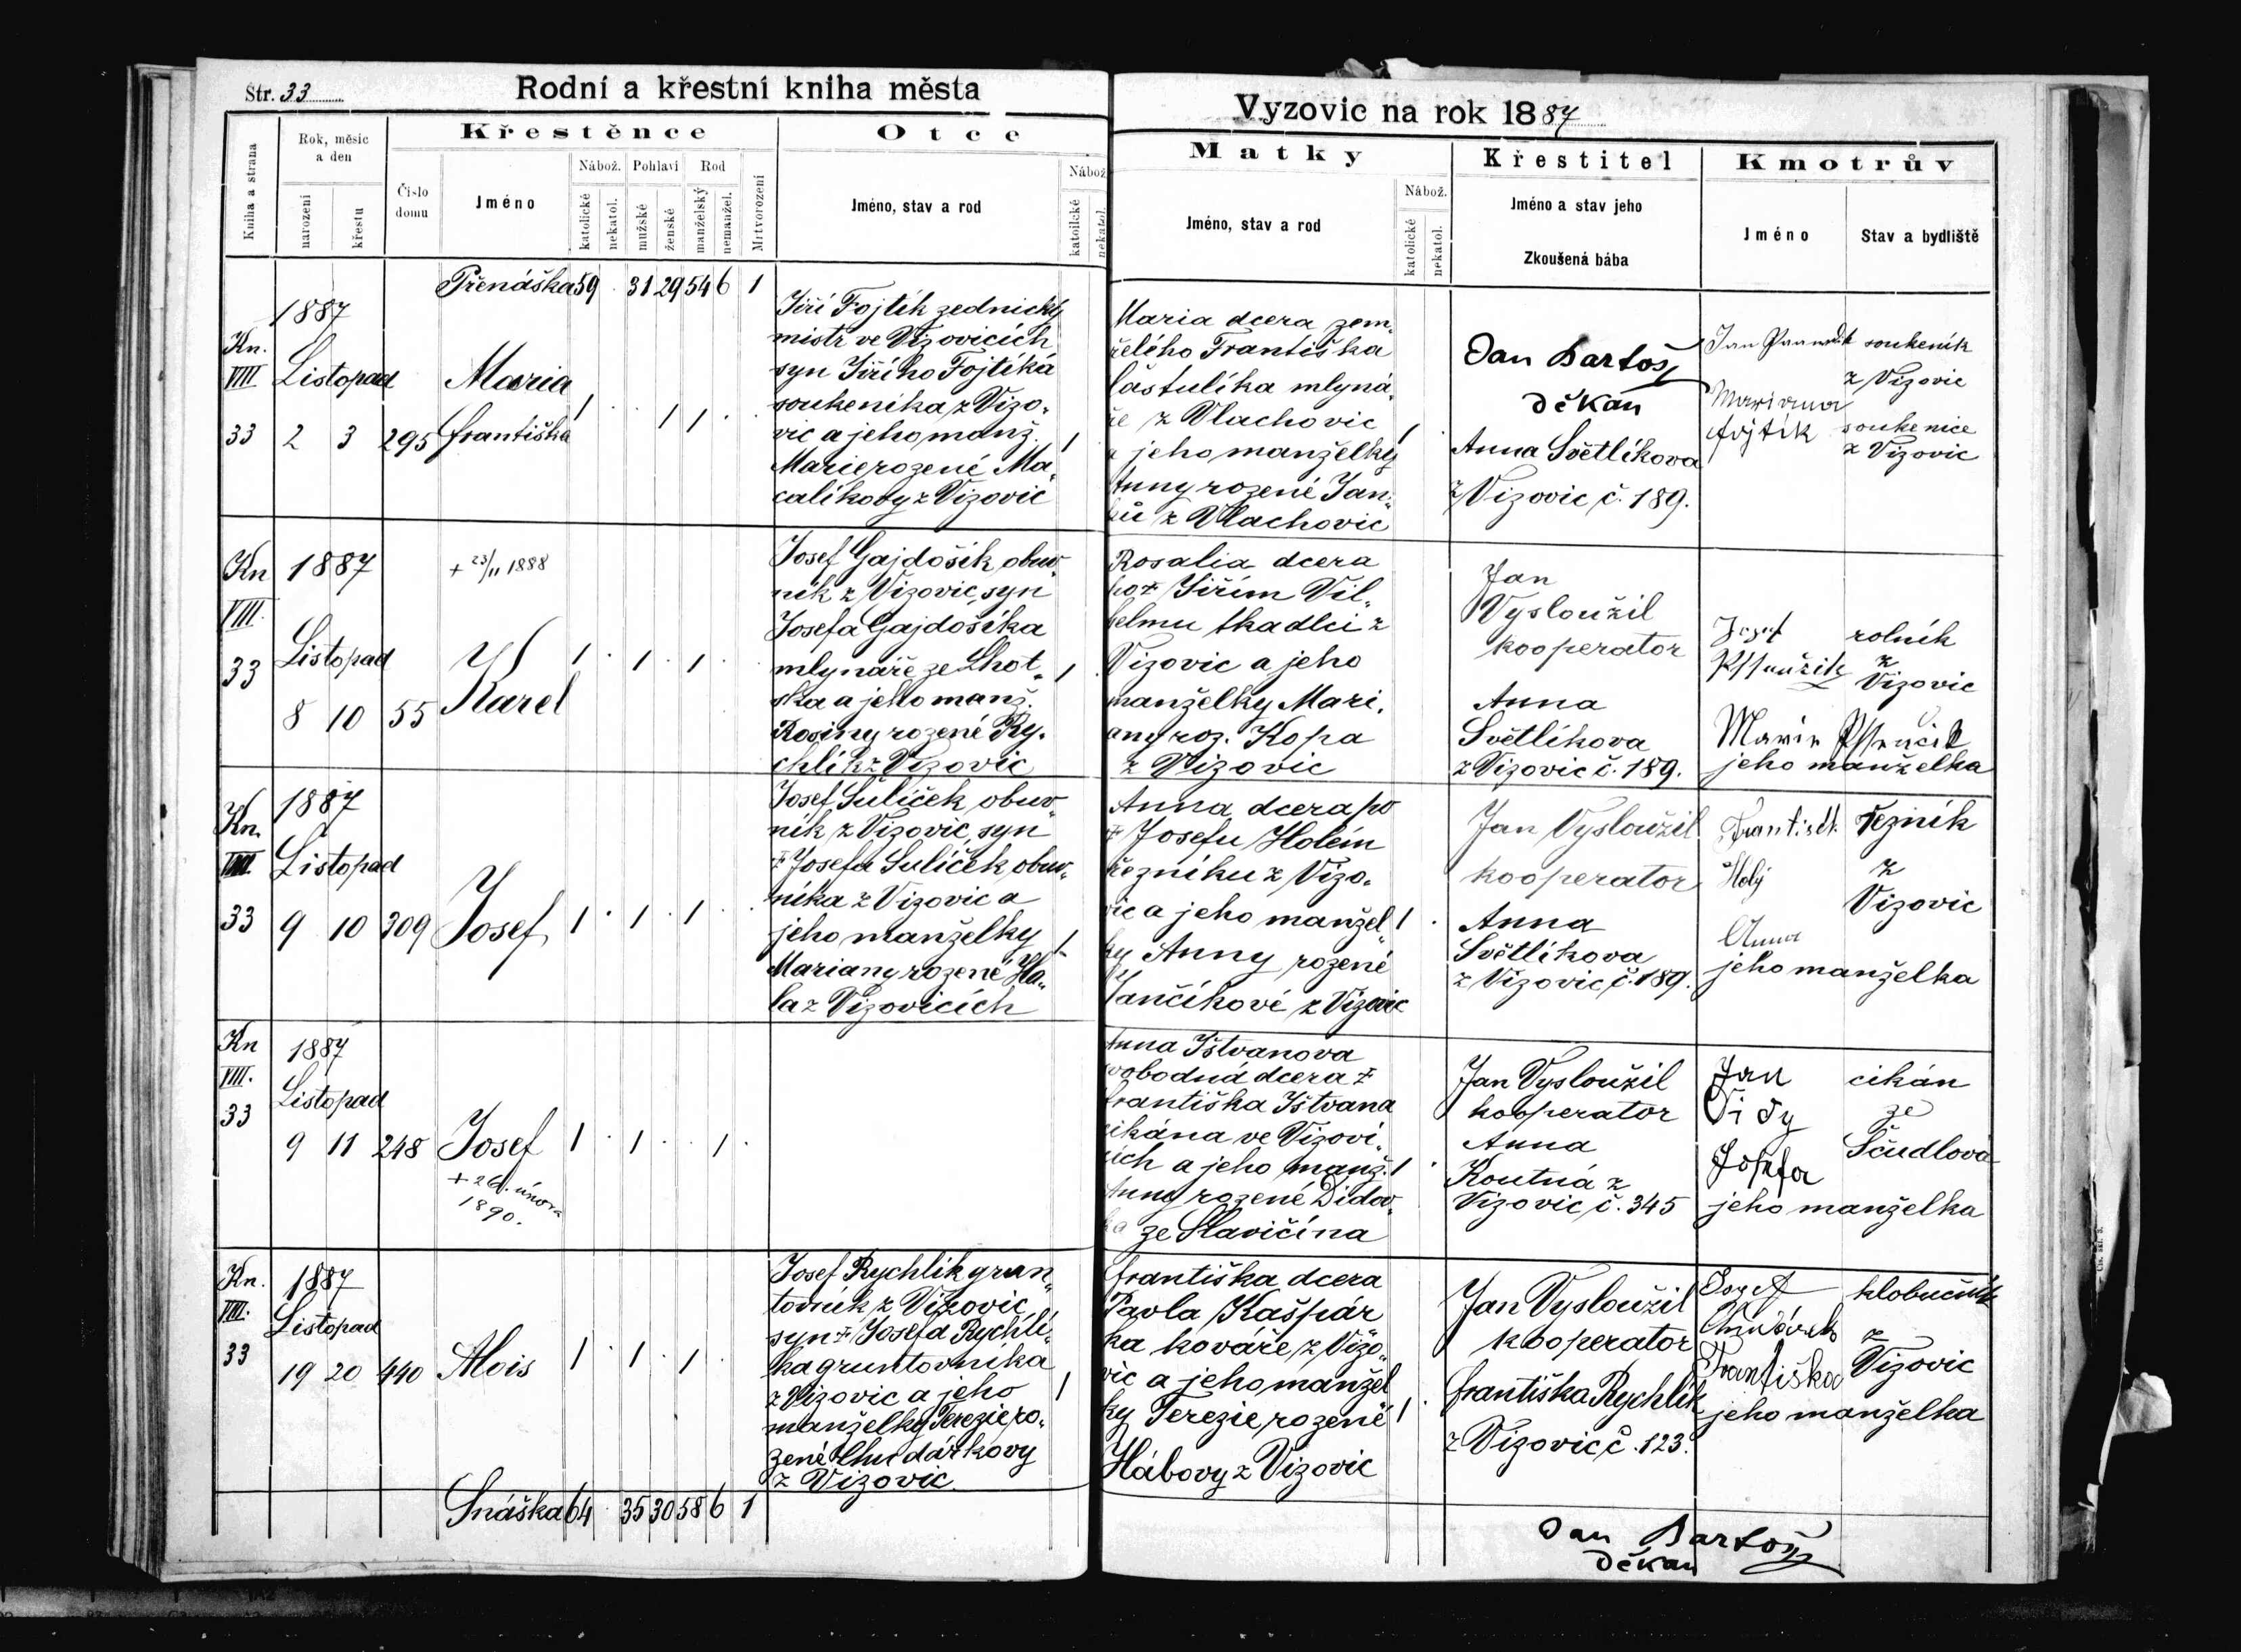 Str. 33
Rodní a křestní kniha města
Vyzovic na rok 1887
Kniha a strana
Rok, měsíc a den
narození
křestu
Číslo domu
Křestěnce
Jméno
Nábož.
katolické
nekatol.
Pohlaví
mužské
ženské
Rod
manželský
nemanžel.
Mrtvorození
Otce
Jméno, stav a rod
Nábož.
katolické
nekatol.
Matky
Jméno, stav a rod
Nábož.
katolické
nekatol.
Křestitel
Jméno a stav jeho
Zkoušená bába
Kmotrův
Jméno
Stav a bydliště
Přenáška 59 . 31 29 54 6 1
Kn.
VIII
33
1887
Listopad
2 3 295
Maria
Františka
1 . . 1 1 .
Jiří Fojtík zednický
mistr ve Vizovicích
syn Jiřího Fojtíka
soukeníka z Vizo„
vic a jeho manž.
Marie rozené Ma„
calíkovy z Vizovic
1
Maria dcera zem„
řelého Františka
Částulíka mlyná„
ře z Vlachovic
a jeho manželky
Anny rozené Jan„
ků z Vlachovic
1 .
Jan Bartoš
děkan
Anna Světlíkova
z Vizovic č. 189.
Jan
soukeník
z Vizovic
Mariana
fojtík
soukenice
z Vizovic
Kn
VIII.
33
1887
Listopad
8 10 55
+ 23/11 1888
Karel
1 . 1 . 1 .
Josef Gajdošík, obuv„
ník z Vizovic, syn
Josefa Gajdošíka
mlynáře ze Lhot„
ska a jeho manž.
Rosiny rozené Ry„
chlík z Vizovic
1 .
Rosalia dcera
po ‡ Jiřím Vil„
helmu tkadlci z
Vizovic a jeho
manželky Mari„
any roz. Kopa
z Vizovic
Jan
Vysloužil
kooperator
Anna
Světlíkova
z Vizovic č. 189.
Josef
rolník
z
Vizovic
Marie
jeho manželka
Kn.
VIII.
33
1887
Listopad
9 10 309
Josef
1 . 1 . 1 .
Josef Sulíček, obuv„
ník z Vizovic, syn
‡ Josefa Sulíček, obuv„
níka z Vizovic a
jeho manželky
Mariany rozené Ha„
la z Vizovicích
1
Anna dcera po
‡ Josefu Holém
řezníku z Vizo„
vic a jeho manžel„
ky Anny rozené
Vančíkové z Vizovic
1 .
Jan Vysloužil
kooperator
Anna
Světlíkova
z Vizovic č. 189.
František
Holý
řezník
z
Vizovic
Anna
jeho manželka
Kn
VIII.
33
1887
Listopad
9 11 248
Josef
+ 26. února
1890.
1 . 1 . . 1 .
Anna Ištvanova
svobodná dcera ‡
Františka Ištvana
cikána ve Vizovi„
cích a jeho manž.
Anny rozené Didov„
ka ze Slavičína
1 .
Jan Vysloužil
kooperator
Anna
Koutná z
Vizovic č. 345
Jan
cikán
ze
Ščudlova
Josefa
jeho manželka
Kn.
VIII.
33
1887
Listopad
19 20 440
Alois
1 . 1 . 1 .
Josef Rychlík grun„
tovník z Vizovic
syn ‡ Josefa Rychlí„
ka gruntovníka
z Vizovic a jeho
manželky Terezie ro„
zené Chudárkovy
z Vizovic
1
Františka dcera
Pavla Kašpár
ka kováře z Vizo„
vic a jeho manžel
ky Terezie rozené
Hábovy z Vizovic
1 .
Jan Vysloužil
kooperator
Františka Rychlík
z Vizovic č. 123.
Josef
Chudárek
klobučník
z
Vizovic
Františka
jeho manželka
Snáška 64 . 35 30 58 6 1
Jan Bartoš
děkan